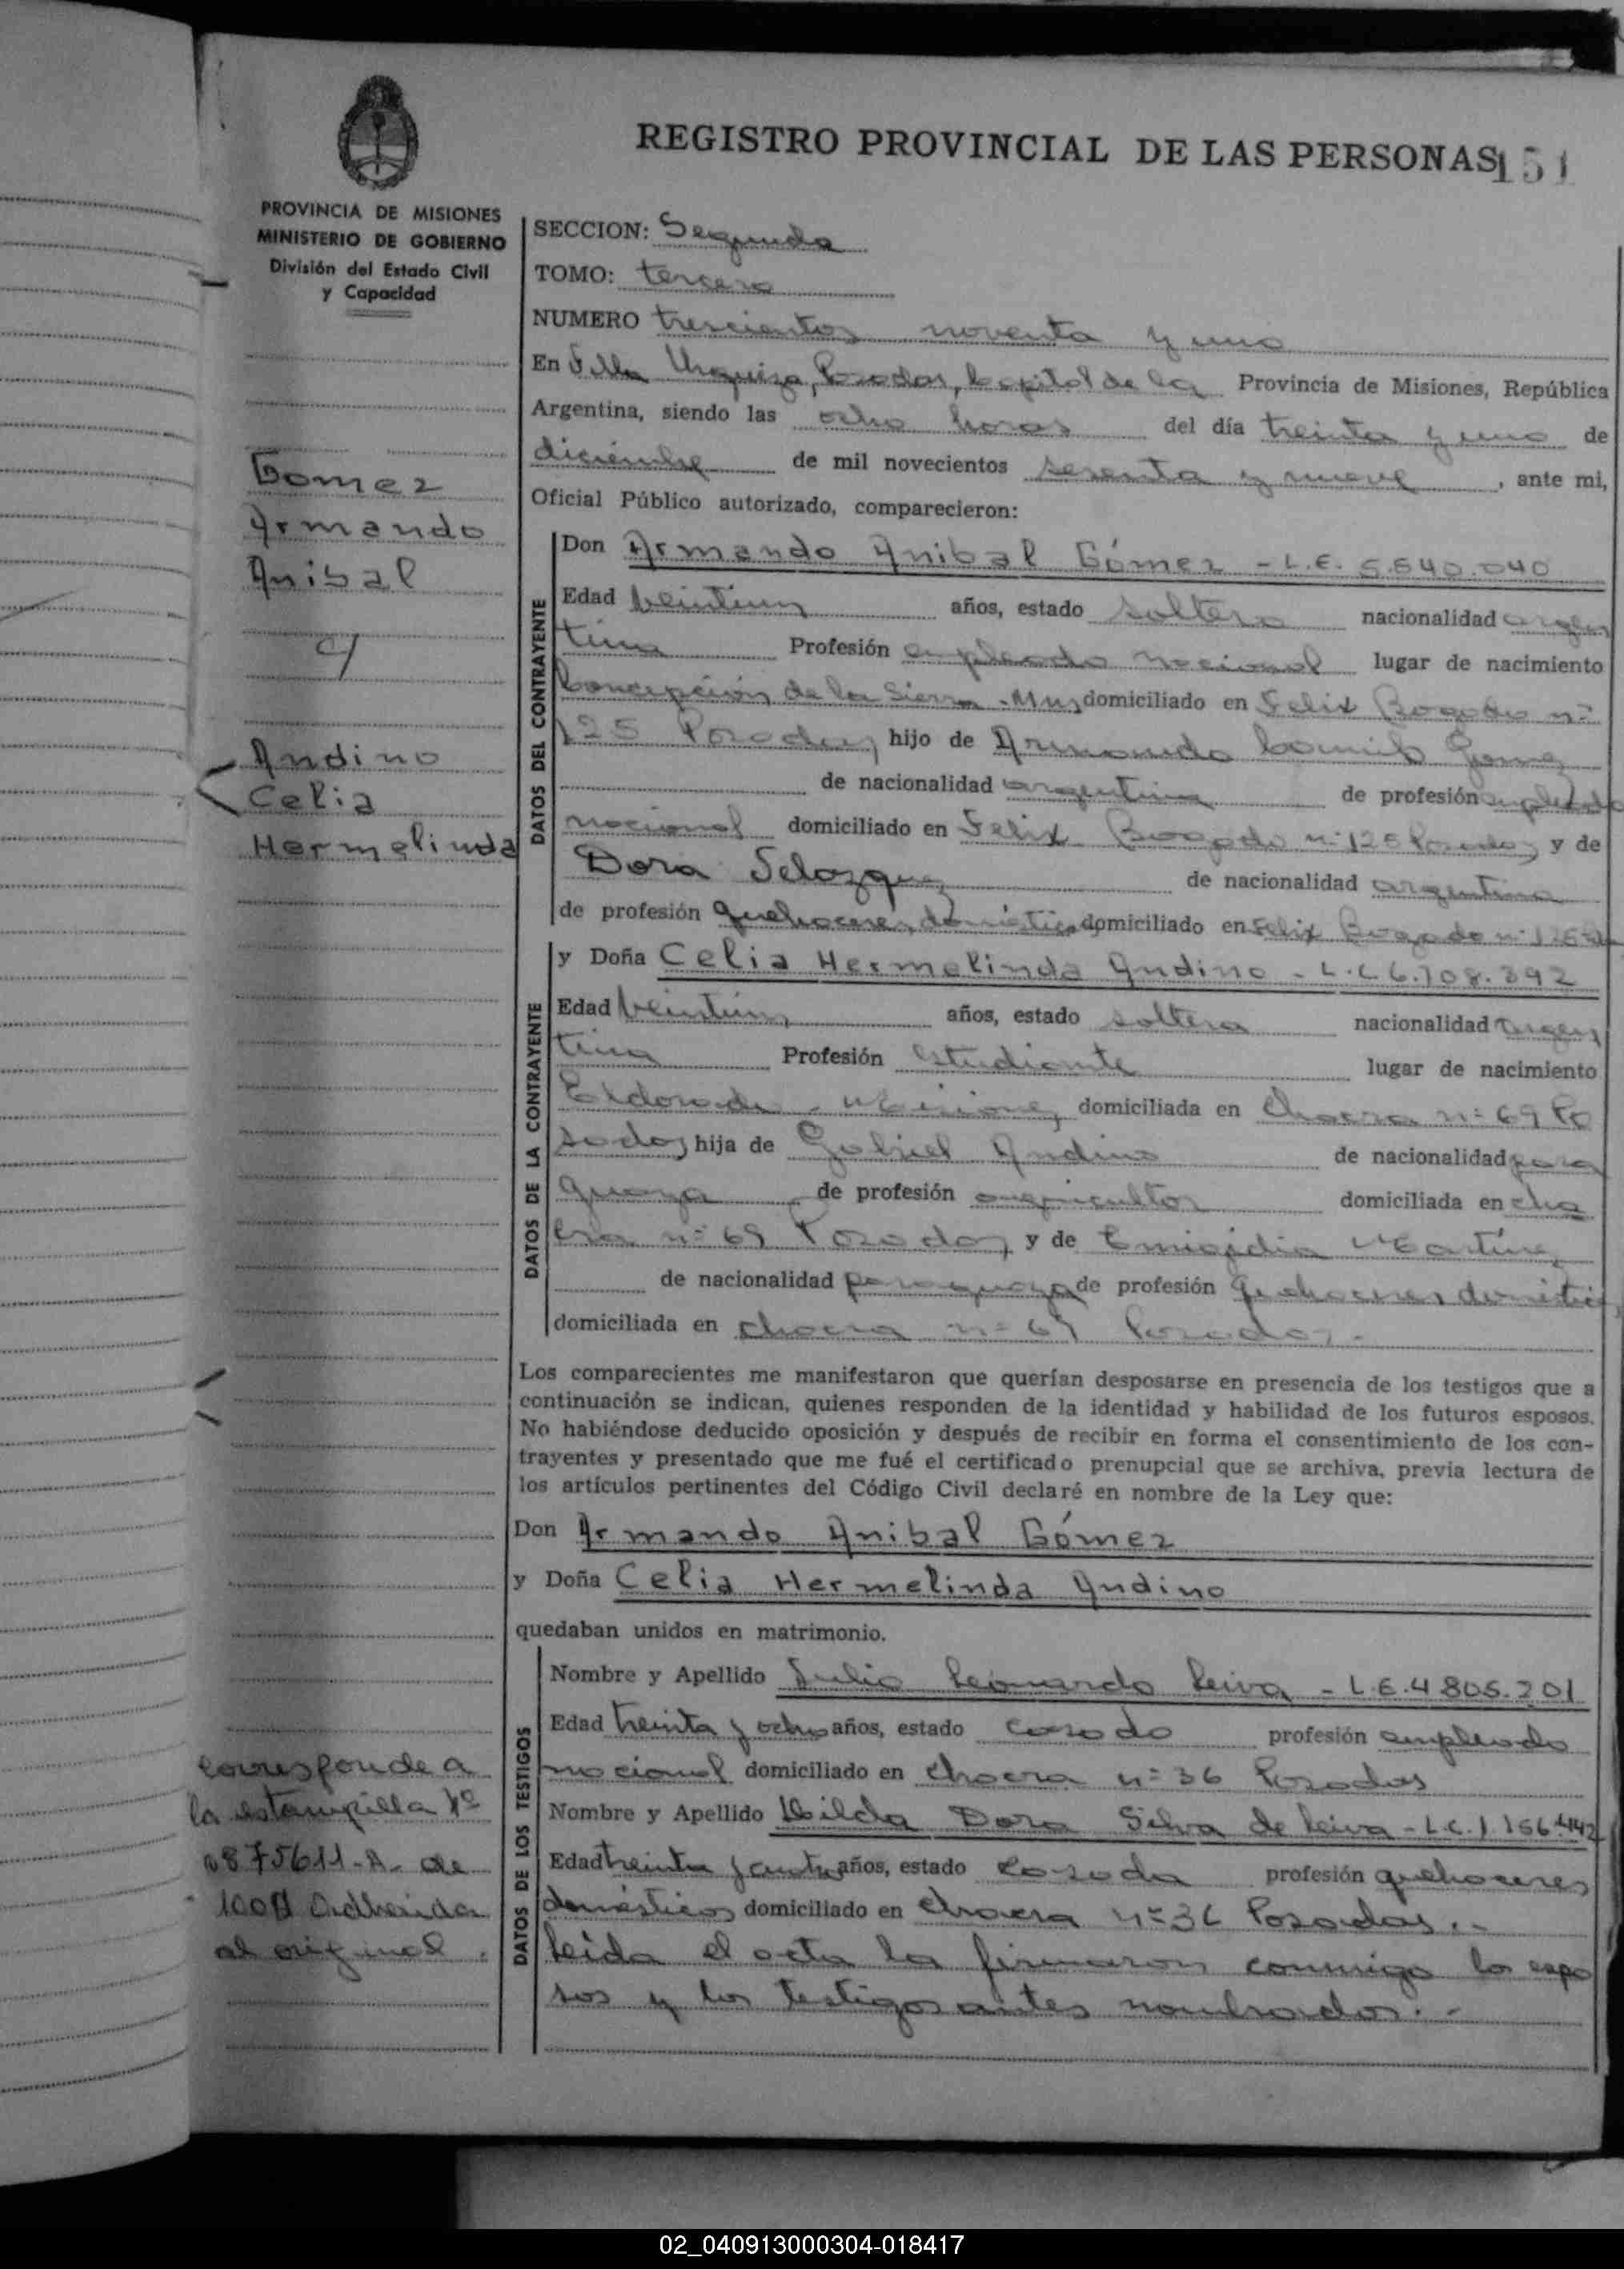 REGISTRO PROVINCIAL DE LAS PERSONAS 151
PROVINCIA DE MISIONES
MINISTERIO DE GOBIERNO
División del Estado Civil
y Capacidad
Gomez
Armando
Anibal
c/
Andino
Celia
Hermelinda
corresponde a
la estampilla Nº
875611-A- de
100$ Adherida
al original.
SECCION: Segunda
TOMO: tercero
NUMERO trescientos noventa y uno
En Villa Urquiza, Posadas, Capital de la Provincia de Misiones, República
Argentina, siendo las ocho horas del día treinta y uno de
diciembre de mil novecientos sesenta y nueve, ante mi,
Oficial Público autorizado, comparecieron:
DATOS DEL CONTRAYENTE
Don Armando Anibal Gómez - L.E. 5.540.040
Edad veintiun años, estado soltero nacionalidad argen
tina Profesión empleado nacional lugar de nacimiento
Concepción de la Sierra - Mns domiciliado en Felix Bogado nº
125 Posadas, hijo de Armando Camilo Gomez
de nacionalidad argentina de profesión empleado
nacional domiciliado en Felix Bogado nº 125 Posadas y de
Dora Velazquez de nacionalidad argentina
de profesión quehaceres domésticos domiciliado en Felix Bogado nº 125
DATOS DE LA CONTRAYENTE
y Doña Celia Hermelinda Andino - L.C 6.708.392
Edad veintiun años, estado soltera nacionalidad argen
tina Profesión estudiante lugar de nacimiento
Eldorado - Misiones domiciliada en Chacra nº 69 Po
sadas hija de Gabriel Andino de nacionalidad para
guaya de profesión agricultor domiciliada en cha
cra nº 69 Posadas y de Emigidia Martinez
de nacionalidad paraguaya de profesión quehaceres domésticos
domiciliada en chacra nº 69 Posadas.
Los comparecientes me manifestaron que querían desposarse en presencia de los testigos que a
continuación se indican, quienes responden de la identidad y habilidad de los futuros esposos.
No habiéndose deducido oposición y después de recibir en forma el consentimiento de los con-
trayentes y presentado que me fué el certificado prenupcial que se archiva, previa lectura de
los artículos pertinentes del Código Civil declaré en nombre de la Ley que:
Don Armando Anibal Gómez
y Doña Celia Hermelinda Andino
quedaban unidos en matrimonio.
DATOS DE LOS TESTIGOS
Nombre y Apellido Julio Leonardo Leiva - L.E. 4.805.201
Edad treinta y ocho años, estado casado profesión empleado
nacional domiciliado en chacra nº 36 Posadas
Nombre y Apellido Hilda Dora Silva de Leiva - L.C. 1.156.442
Edad treinta y cuatro años, estado casada profesión quehaceres
domésticos domiciliado en chacra nº 36 Posadas.-
Leida el acta la firmaron conmigo los espo
sos y los testigos antes nombrados.-
02_040913000304-018417